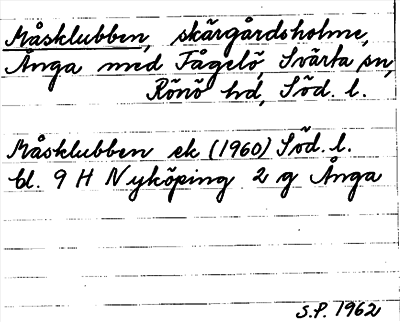 Måsklubben, skärgårdsholme,
Ånga med Fågelö, Svärta sn,
Rönö hd, Söd. l.
Måsklubben ek (1960) Söd. l.
bl. 9 H Nyköping 2 g Ånga
S.P. 1962